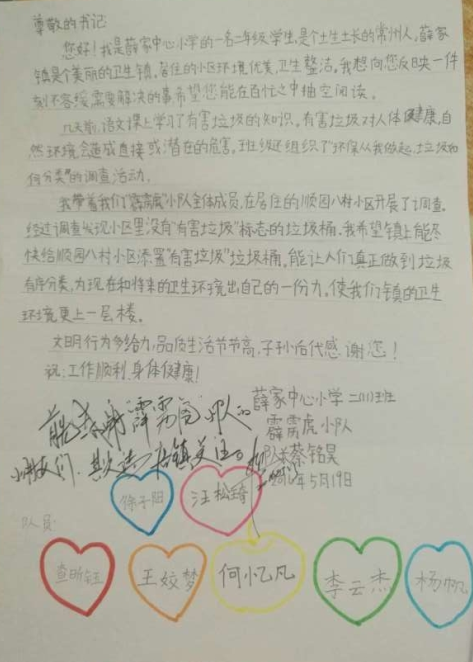 尊敬的书记
您好！我是薛家中心小学的一名二年级学生,是个土生土长的常州人,薛家
镇是个美丽的卫生镇,居住的小区环境优美,卫生整洁,我想向您反映一件
刻不容缓需要解决的事希望您能在百忙之中抽空阅读。
几天前,语文课上学习了有害垃圾的知识。有害垃圾对人体健康,自
然环境会造成直接或潜在的危害,班级还组织了"环保从我做起,垃圾如
何分类"的调查活动。
我带着我们"霹雳虎"小队全体成员,在居住的顺园八村小区开展了调查。
经过调查发现小区里没有"有害垃圾"标志的垃圾桶。我希望镇上能尽
快给顺园八村小区添置"有害垃圾"垃圾桶。能让人们真正做到垃圾
有序分类,为现在和将来的卫生环境出自己的一份力。使我们镇的卫生
环境更上一层楼。
文明行为多给力,品质生活节节高,子孙后代感谢您！
祝:工作顺利,身体健康！
薛家中心小学二(1)班
霹雳虎小队
队长蔡铭昊
2016年5月19日
霹雳虎小队的
小朋友们
徐子阳
汪松琦
队员:
查昕钰
王姣梦
何忆凡
李云杰
杨帆